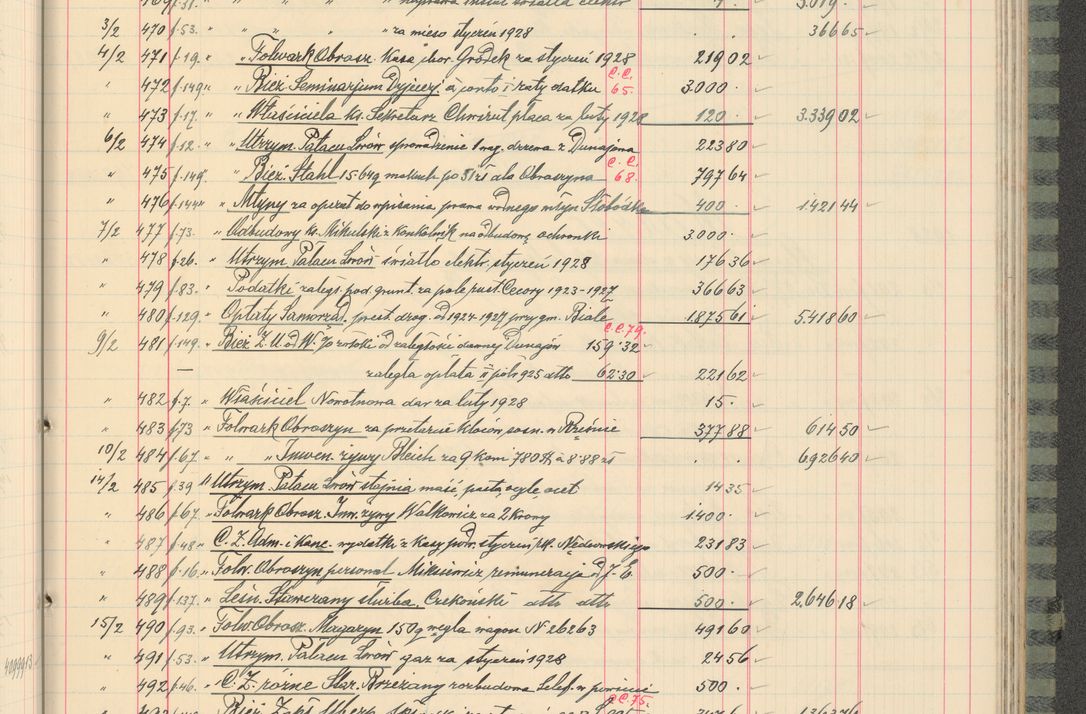 3/2 470 f.53. " " " " " za mięso styczeń 1928 . . 36665
4/2 471 f.19. " " Folwark Obrosz. Kasa chor. Gródek za styczeń 1928 21902
C.C.
" 472 f.149. " " Bież. Seminarjum à conto i raty datku 65. 3.000.
" 473 f.17. " " Właściciela ks. Sekretarz Chwirut płaca za luty 1928 120. 3.33902
6/2 474 f.12. " " Utrzym. Pałacu Lwów sprowadzenie 1 wag. drzewa z Dunajowa 22380
C.C.
" 475 f.149. " Bież. Stahl 15.64q makuch po 51 zł dla Obroszyna 68. 79764
" 476 f.144. " Młyny za operat do wpisania prawa wodnego młyn Słobódka 400. 1.42144
7/2 477 f.73. " Odbudowy ks. Mikulski z Konkolnik na odbudowę ochronki 3.000.
" 478 f.26. " Utrzym. Pałacu Lwów światło elektr. styczeń 1928 17636
" 479 f.83. " Podatki zaległ. pod. grunt. za pole rust. Cecory 1923-1927 36663
" 480 f.129. " Opłaty Samorząd. prest. drog. od 1924-1927 przy gm. Białe 1.87561 5.41860
C.C.79.
9/2 481 f.149. " Bież. Z.U.od W. % zwłoki od zaległości dawnej Dunajów 159.32
— zaległa opłata II półr 925 dtto 62.30 22162
" 482 f.7. " Właściciel Nowotnowa dar za luty 1928 15.
" 483 f.73 " Folwark Obroszyn za przetarcie kloców sosn. w Rześnie 37788 61450
10/2 484 f.67. " " Inwen. żywy Bleich za 9 koni 780 à 8.88 zł . . 692640
14/2 485 f.39 " Utrzym. Pałacu Lwów stajnia maść, pasta, ocet 1435
" 486 f.67. " Folwark Obrosz. Inw. żywy Walkowicz za 2 krowy 1.400.
" 487 f.48. " C.Z. Adm. i kanc. wydatki z kasy podr. styczeń 23183
" 488 f.16. " Folw. Obroszyn personal Miksiewicz remuneracja 500.
" 489 f.137. " Leśn. Stawczany służba Czekoński dtto dtto 500. 2.64618
15/2 490 f.93. " Folw. Obrosz. Magazyn 150q węgla wagon N 26263 49160
" 491 f.53. " Utrzym. Pałacu Lwów gaz za styczeń 1928 2456
" 492 f.46. " C.Z. różne Star. Brzeżany rozbudowa telef. w powiecie 500.
C.C.75.